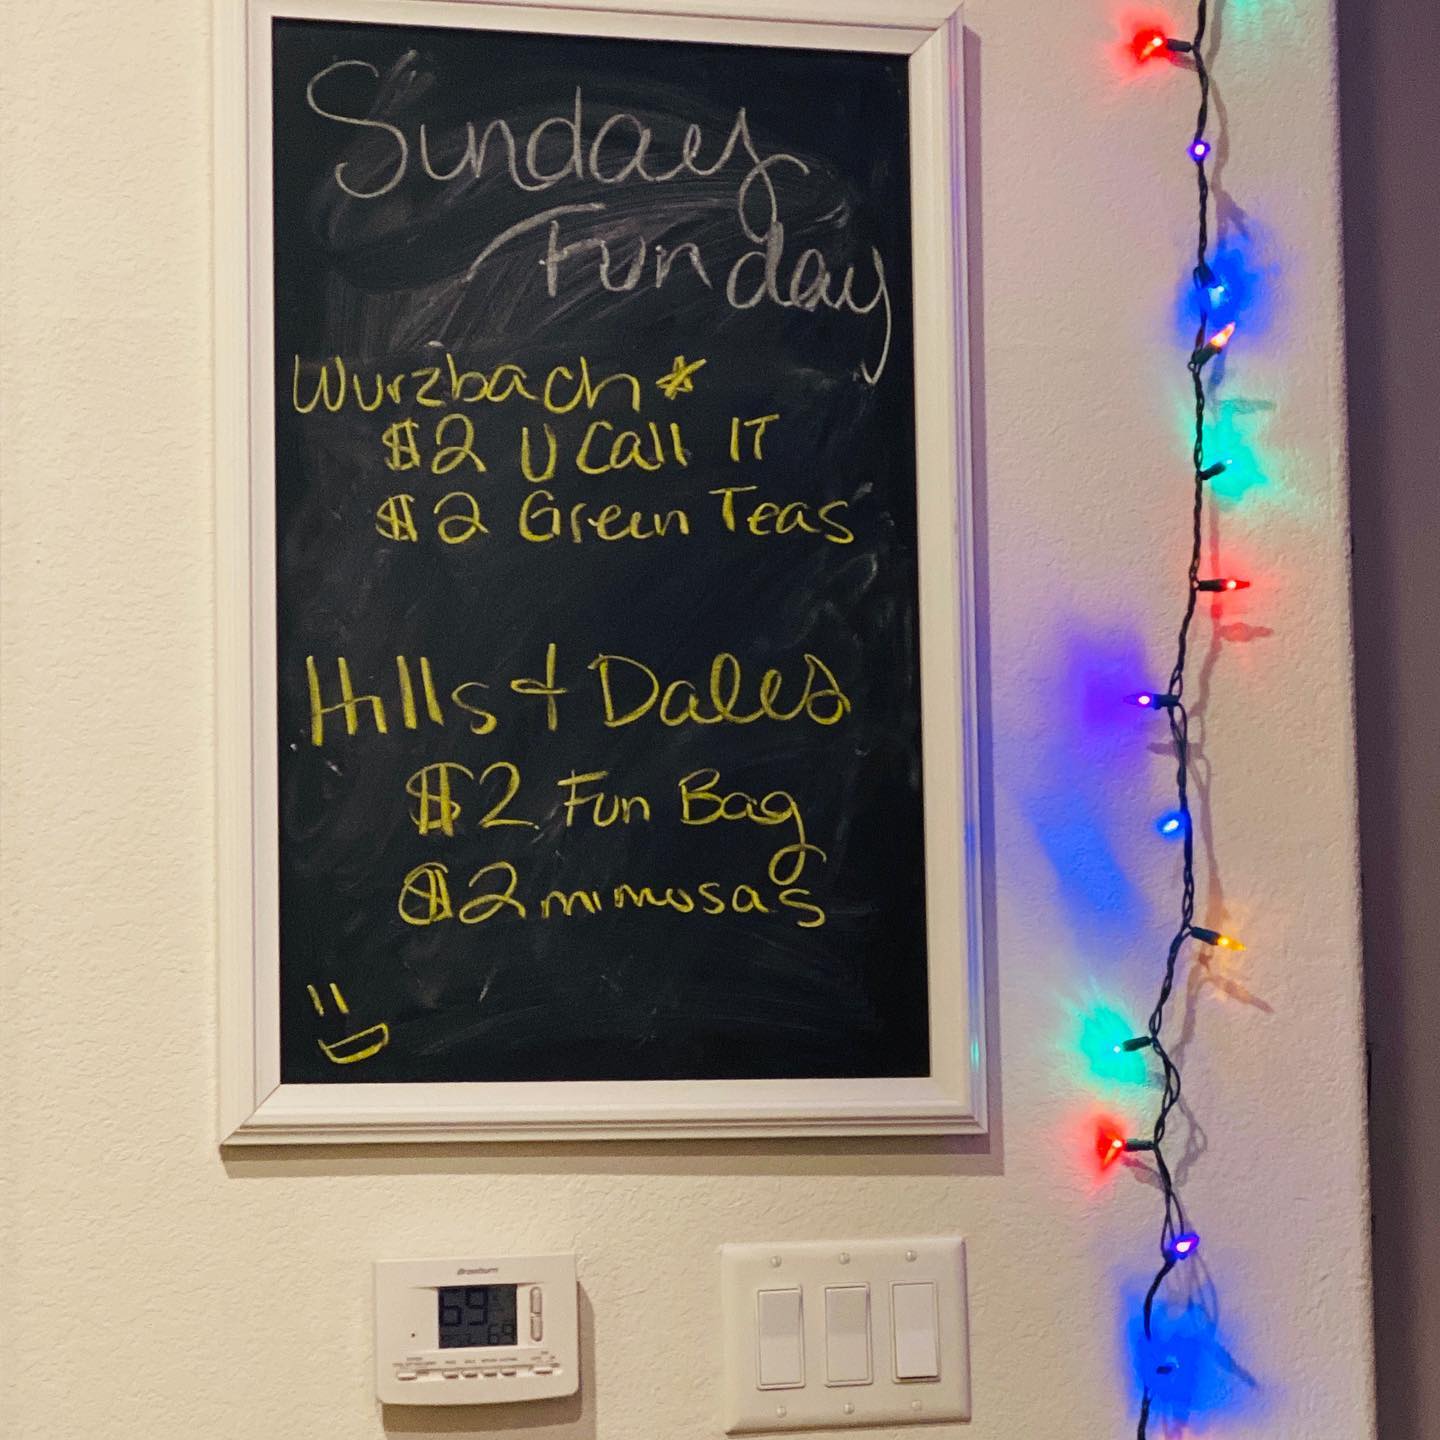 Sunday
Funday
Wurzbach *
$2 U Call IT
$2 Green Teas
Hills & Dales
$2 Fun Bag
$2 mimosas
Braeburn
69
69